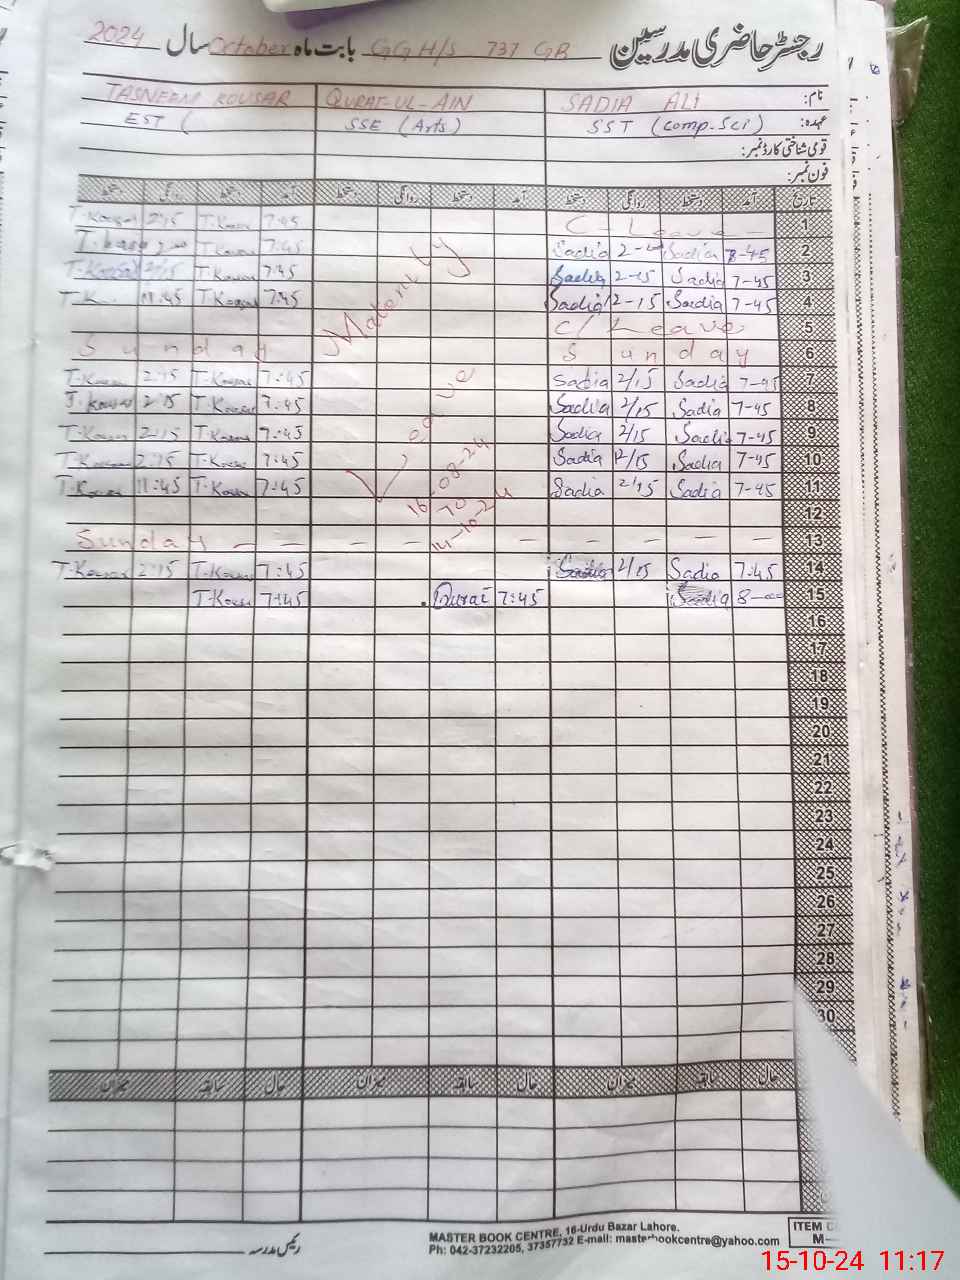 رجسٹر حاضری مدرسین GGH/S 737 GB بابت ماہ October سال 2024
نام: SADIA ALI QURAT-UL-AIN TASNEEM KOUSAR
عہدہ: SST (Comp.Sci) SSE (Arts) EST (
قومی شناختی کارڈ نمبر:
فون نمبر:
تاریخ آمد دستخط روانگی دستخط آمد دستخط روانگی دستخط آمد دستخط روانگی دستخط
1 C-Leave 7:45 T-Kousar 2:15 T-Kousar
2 Sadia Sadia 7:45 T-Kousar
3 7-45 Sadia 2-15 Sadia 7:45 T-Kousar 2:15 T-Kousar
4 7-45 Sadia 2-15 Sadia 7:45 T-Kousar 11:45
5 C/Leave
6 Sunday Sunday
7 7-45 Sadia 2/15 Sadia 7:45 T-Kousar 2:15 T-Kousar
8 7-45 Sadia 2/15 Sadia 7:45 T-Kousar 2:15 T-Kousar
9 7-45 Sadia 2/15 Sadia 7:45 T-Kousar 2:15 T-Kousar
10 7-45 Sadia 2/15 Sadia 7:45 T-Kousar 2:15 T-Kousar
11 7-45 Sadia 2/15 Sadia 7:45 T-Kousar 11:45 T-Kousar
Maternity
Leave
16-08-24
TO
14-10-24
12
13 Sunday
14 7:45 Sadia 2/15 Sadia 7:45 T-Kousar 2:15 T-Kousar
15 Sadia 7:45 Qurat 7:45 T-Kousar
16
17
18
19
20
21
22
23
24
25
26
27
28
29
30
حال سابقہ میزان حال سابقہ میزان حال سابقہ میزان
رئیس مدرسہ
MASTER BOOK CENTRE, 16-Urdu Bazar Lahore.
Ph: 042-37232205, 37357732 E-mail: masterbookcentre@yahoo.com
ITEM
M-
15-10-24 11:17